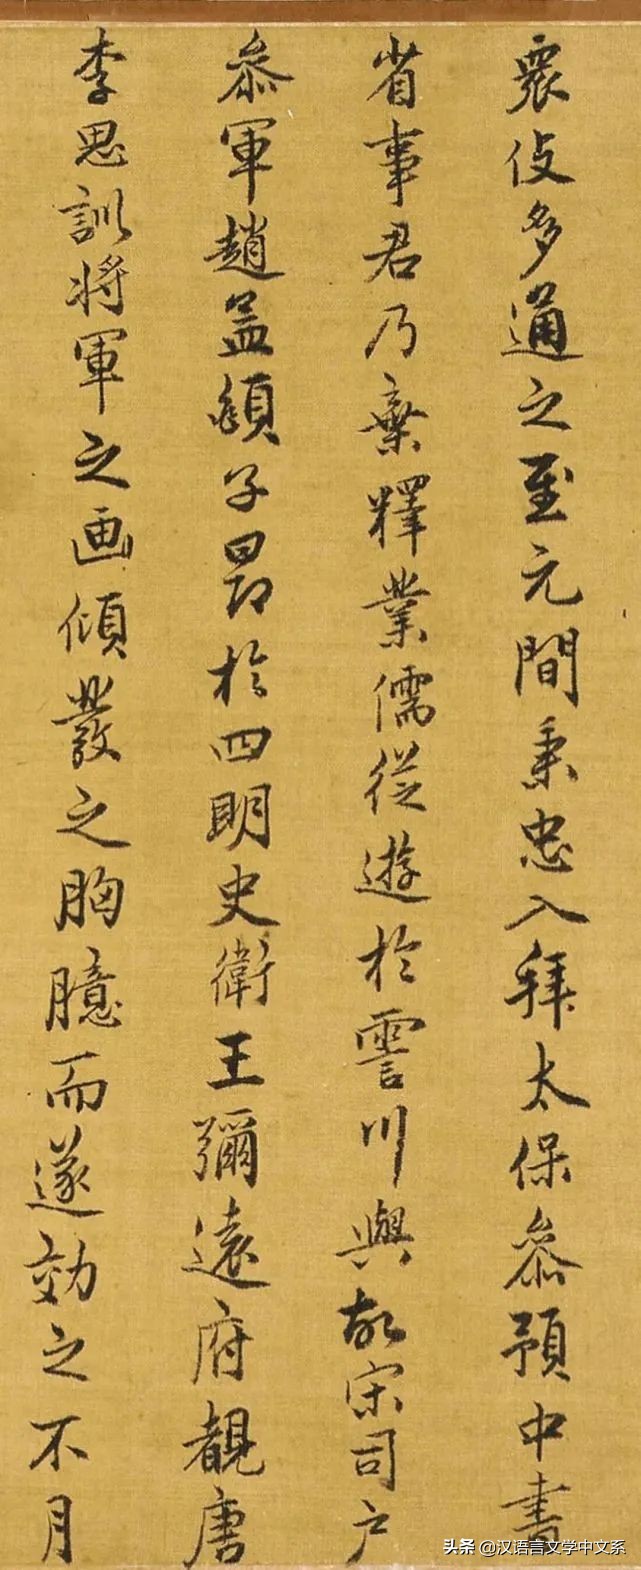 衆伎多通之至元間秉忠入拜太保叅預中書
省事君乃棄釋業儒從遊於霅川與故宋司户
叅軍趙孟頫子昂於四明史衛王彌遠府覩唐
李思訓將軍之画傾發之胸臆而遂効之不月
头条 @汉语言文学中文系